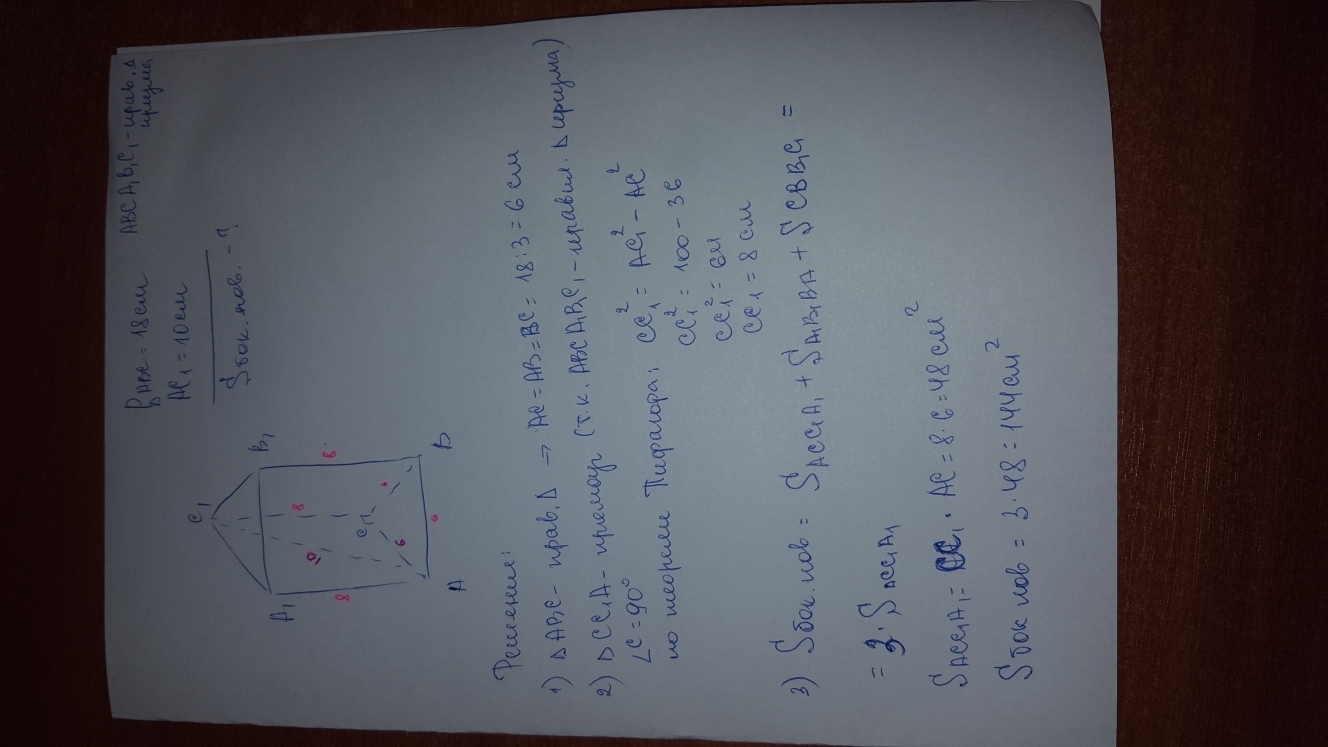 P ABC = 18 см ABCA₁B₁C₁ - прав. Δ
призма
AC₁ = 10 см
Sбок. пов. - ?
C₁
A₁ B₁
8 10 8 8
C
6 6
A 6 B
Решение:
1) Δ ABC - прав. Δ → AC = AB = BC = 18 : 3 = 6 см
2) Δ CC₁A - прямоуг (т.к. ABCA₁B₁C₁ - правил. Δ призма)
∠C = 90°
по теореме Пифагора: CC₁² = AC₁² - AC²
CC₁² = 100 - 36
CC₁² = 64
CC₁ = 8 см
3) Sбок. пов = S ACC₁A₁ + S A₁B₁BA + S CBB₁C₁ =
= 3 · S ACC₁A₁
S ACC₁A₁ = CC₁ · AC = 8 · 6 = 48 см²
Sбок пов = 3 · 48 = 144 см²